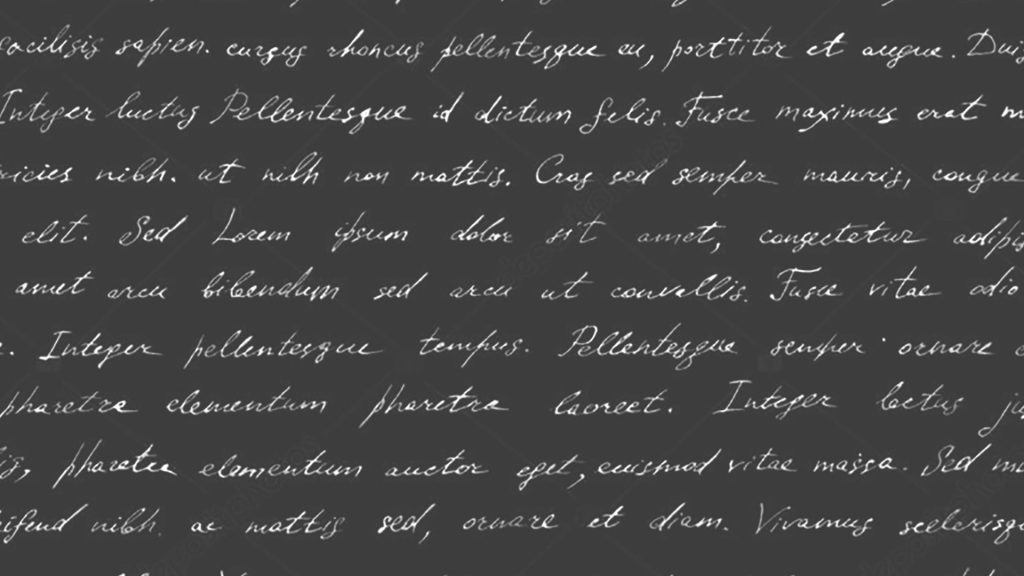 facilisis sapien. cursus rhoncus pellentesque eu, porttitor et augue. Duis
Integer luctus Pellentesque id dictum felis. Fusce maximus erat
ricies nibh. ut nibh non mattis. Cras sed semper mauris, congue
elit. Sed Lorem ipsum dolor sit amet, consectetur adipis
amet arcu bibendum sed arcu ut convallis. Fusce vitae odio
. Integer pellentesque tempus. Pellentesque semper ornare
pharetra elementum pharetra laoreet. Integer lectus
pharetra elementum auctor eget, euismod vitae massa. Sed
eifend nibh. ac mattis sed, ornare et diam. Vivamus scelerisque